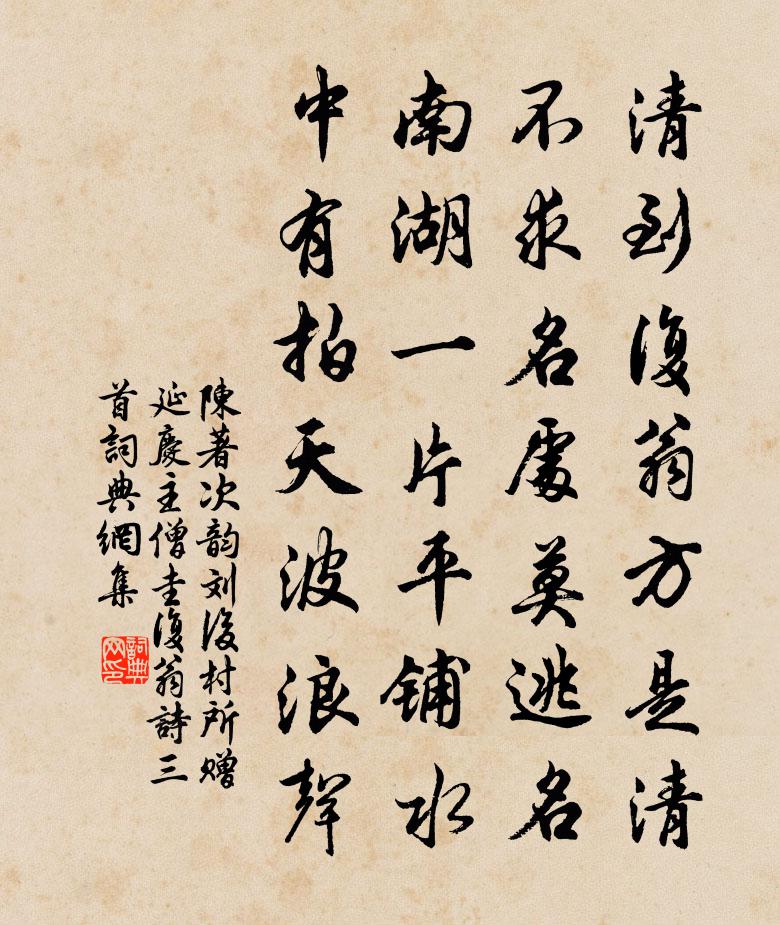 清到復翁方是清
不求名處莫逃名
南湖一片平鋪水
中有拍天波浪聲
陳著次韵刘後村所赠
延慶主僧圭復翁詩三
首詞典網集
詞典网印